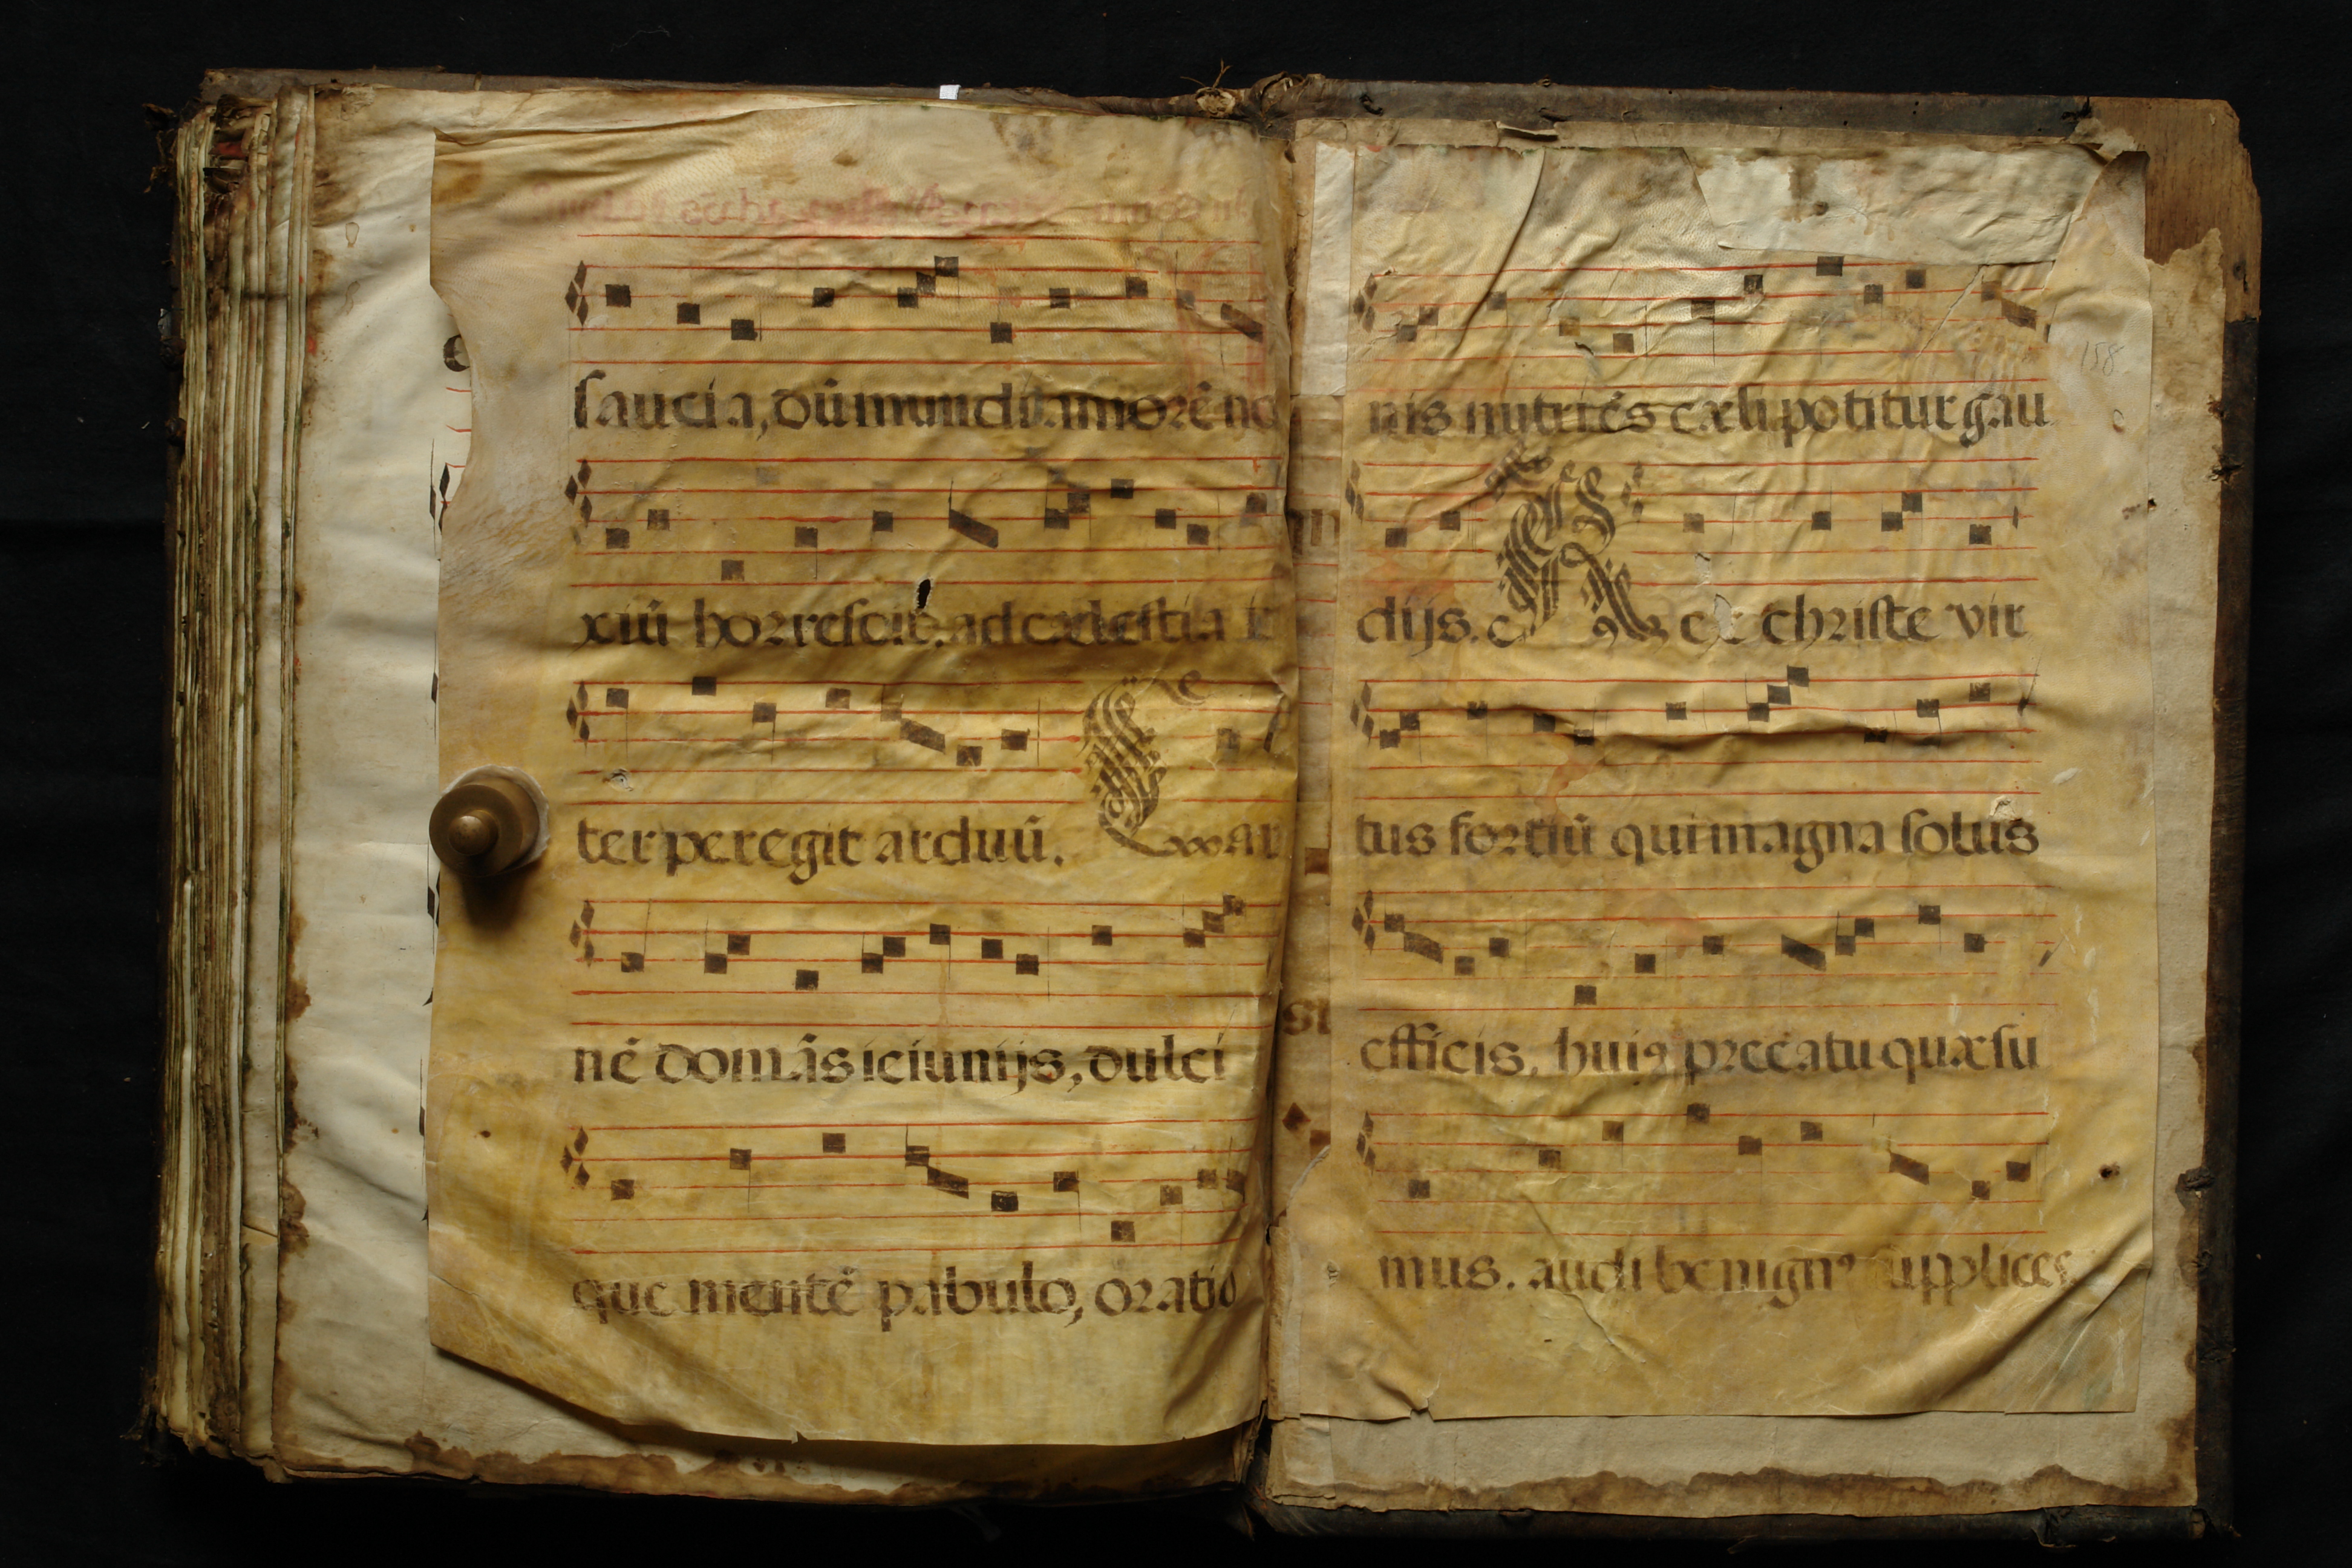 saucia, dũ mundi amorẽ no
xiũ horrescit. ad cælestia i
ter peregit arduũ. Car
nẽ domãs ieiunijs, dulci
que mentẽ pabulo, oratio
nis nutriẽs cæli potitur gau
dijs. Rex christe vir
tus fortiũ qui magna solus
efficis. huiꝯ precatu quæsu
mus. audi benignꝰ supplices
158